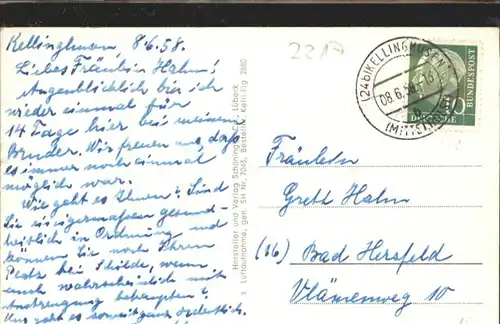 Kellinghusen, 8.6.58.
Liebes Fräulein Hahn!
Augenblicklich bin ich
wieder einmal für
14 Tage hier bei meinem
Bruder. Wir freuen uns, daß
es immer noch einmal
möglich war.
Wie geht es Ihnen? Sind
Sie einigermaßen gesund-
heitlich in Ordnung und
können Sie noch Ihren
Posten bei Schilde, wenn
auch wahrscheinlich mit
Anstrengung behaupten?
Uns geht es soweit ganz ordentlich.
Hersteller und Verlag Schöning & Co., Lübeck
s Luftaufnahme, gen. SH Nr. 7045, Bestellnr. Kell-Flg. 2680
2217
(24b) KELLINGHUSEN
08.6.58
(MITTELH
10
DEUTSCHE
BUNDESPOST
Fräulein
Greth Hahn
(16) Bad Hersfeld
Vlämenweg 10